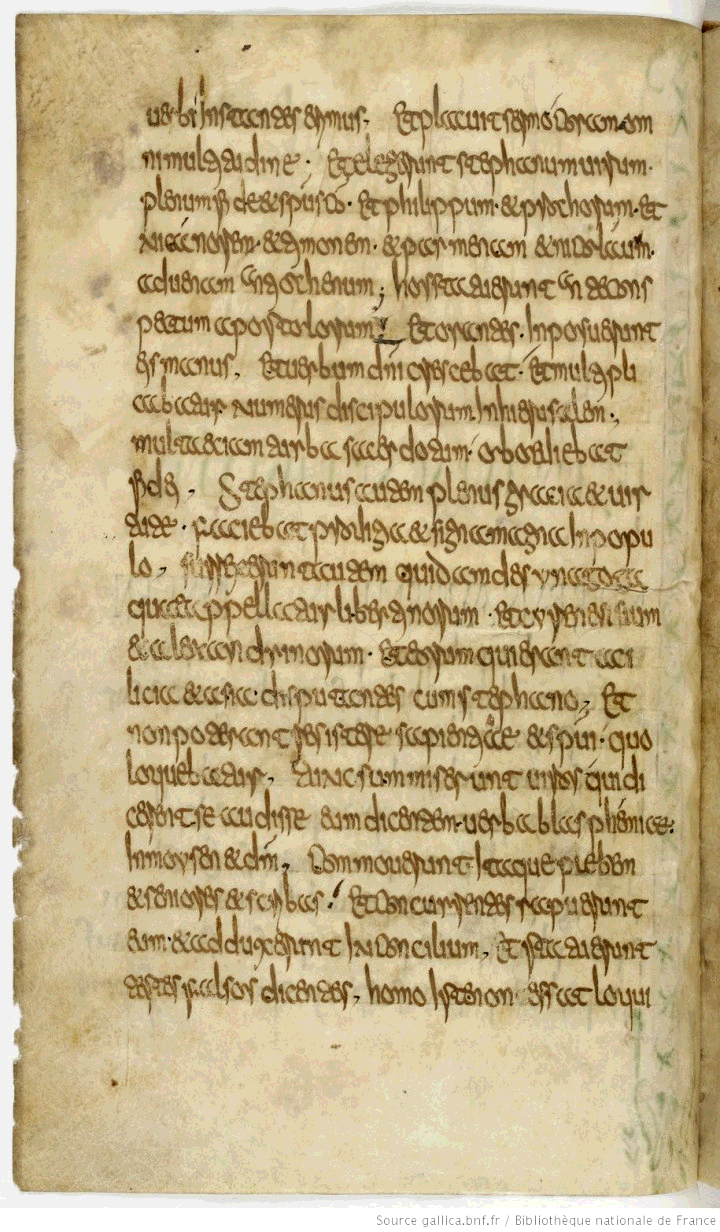 uerbi instantes erimus. Et placuit sermo coram om
ni multitudine; Et elegerunt stephanum uirum
plenum fide et spu sco. Et philippum. et prochorum. Et
nicanorem. et timonem. et parmenam et nicolaum.
aduenam antiochenum; hos statuerunt an te cons
pectum apostolorum. Et orantes. Inposuerunt
eis manus. Et uerbum dni crescebat. Et multipli
cabatur numerus discipulorum In hierusalem.
multa etiam turba sacerdotum. oboediebat
fidei. Stephanus autem plenus gracia et uir
tute. faciebat prodigia et signa magna In popu
lo, surrexerunt autem quidam de synagoga
quae appellatur libertinorum. Et cyrenensium
et alexandrinorum. Et eorum qui erant a ci
licia et asia. disputantes cum stephano, Et
non poterant resistere sapientiae et spui. quo
loquebatur, tunc summiserunt uiros qui di
cerent. se audisse eum dicentem. uerba blasphemiae.
In moysen et dm, Commouerunt Itaque plebem
et seniores et scribas. Et concurrentes rapuerunt
eum. et adduxerunt In concilium, Et statuerunt
testes falsos dicentes, homo Iste non cessat loqui
Source gallica.bnf.fr / Bibliothèque nationale de France